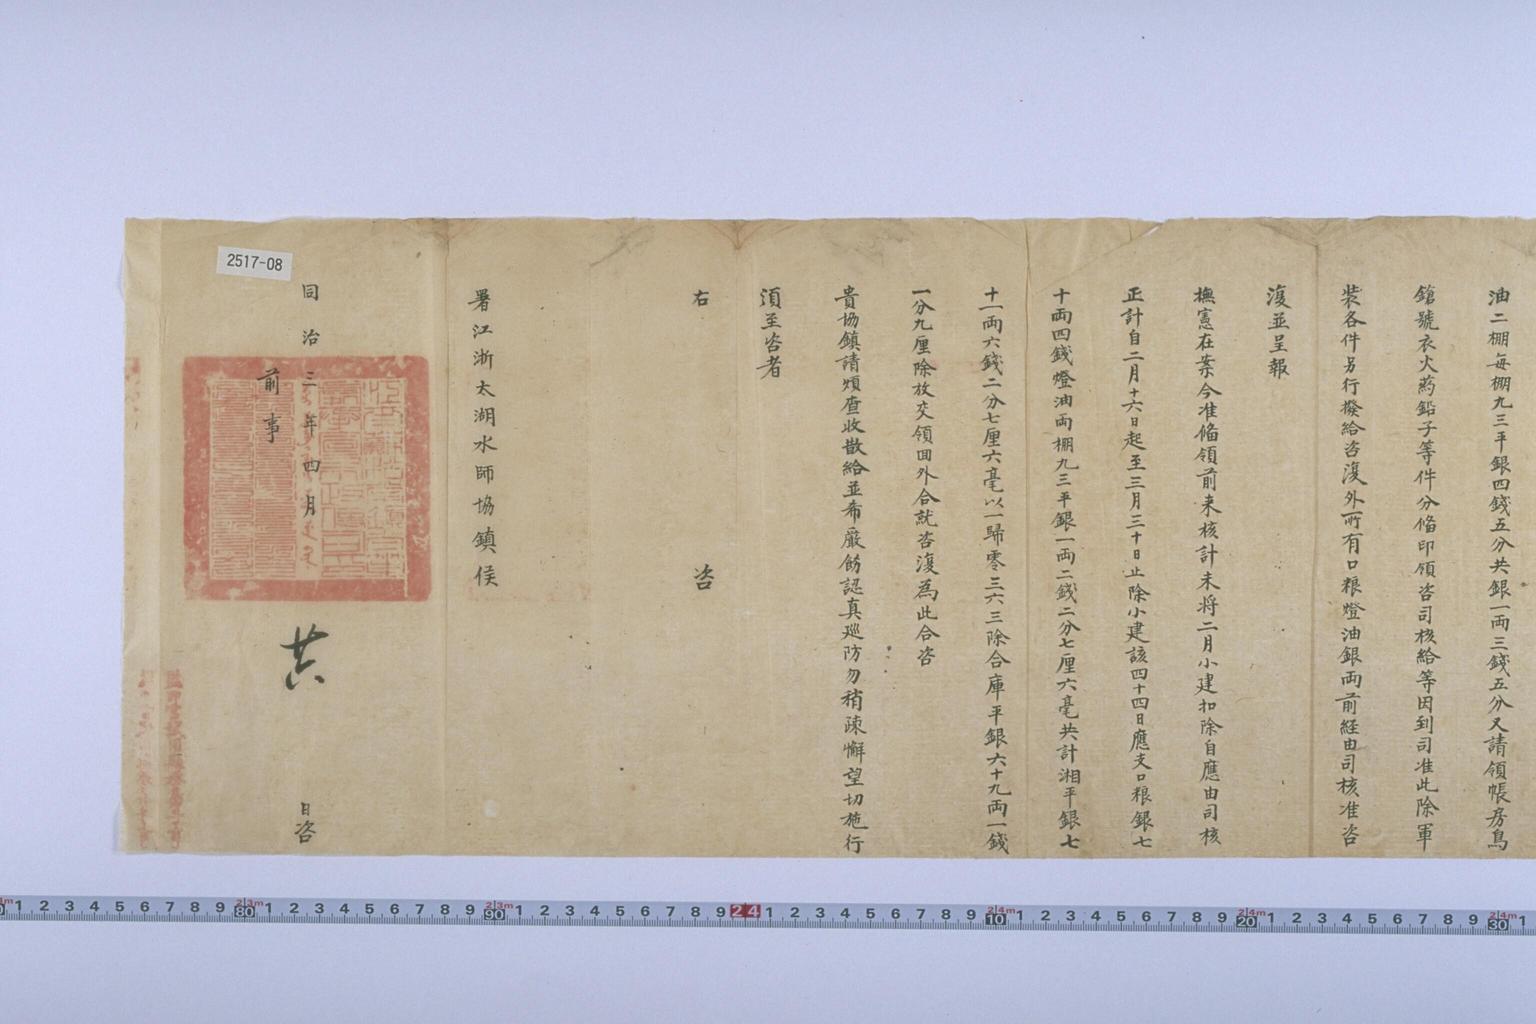 油二棚每棚九三平銀四錢五分共銀一両三錢五分又請領帳房鳥
鎗號衣火葯鉛子等件分俻印領咨司核給等因到司准此除軍
裝各件另行撥給咨復外所有口粮燈油銀両前経由司核准咨
復並呈報
撫憲在案今准俻領前来核計未将二月小建扣除自應由司核
正計自二月十六日起至三月三十日止除小建該四十四日應支口粮銀七
十両四錢燈油両棚九三平銀一両二錢二分七厘六毫共計湘平銀七
十一両六錢二分七厘六毫以一歸零三六三除合庫平銀六十九両一錢
一分九厘除放交領回外合就咨復為此合咨
貴協鎮請煩查收散給並希嚴飭認真廵防勿稍疎懈望切施行
須至咨者
右
咨
署江浙太湖水師協鎮侯
同治三年四月
日咨
前事
共
2517-08